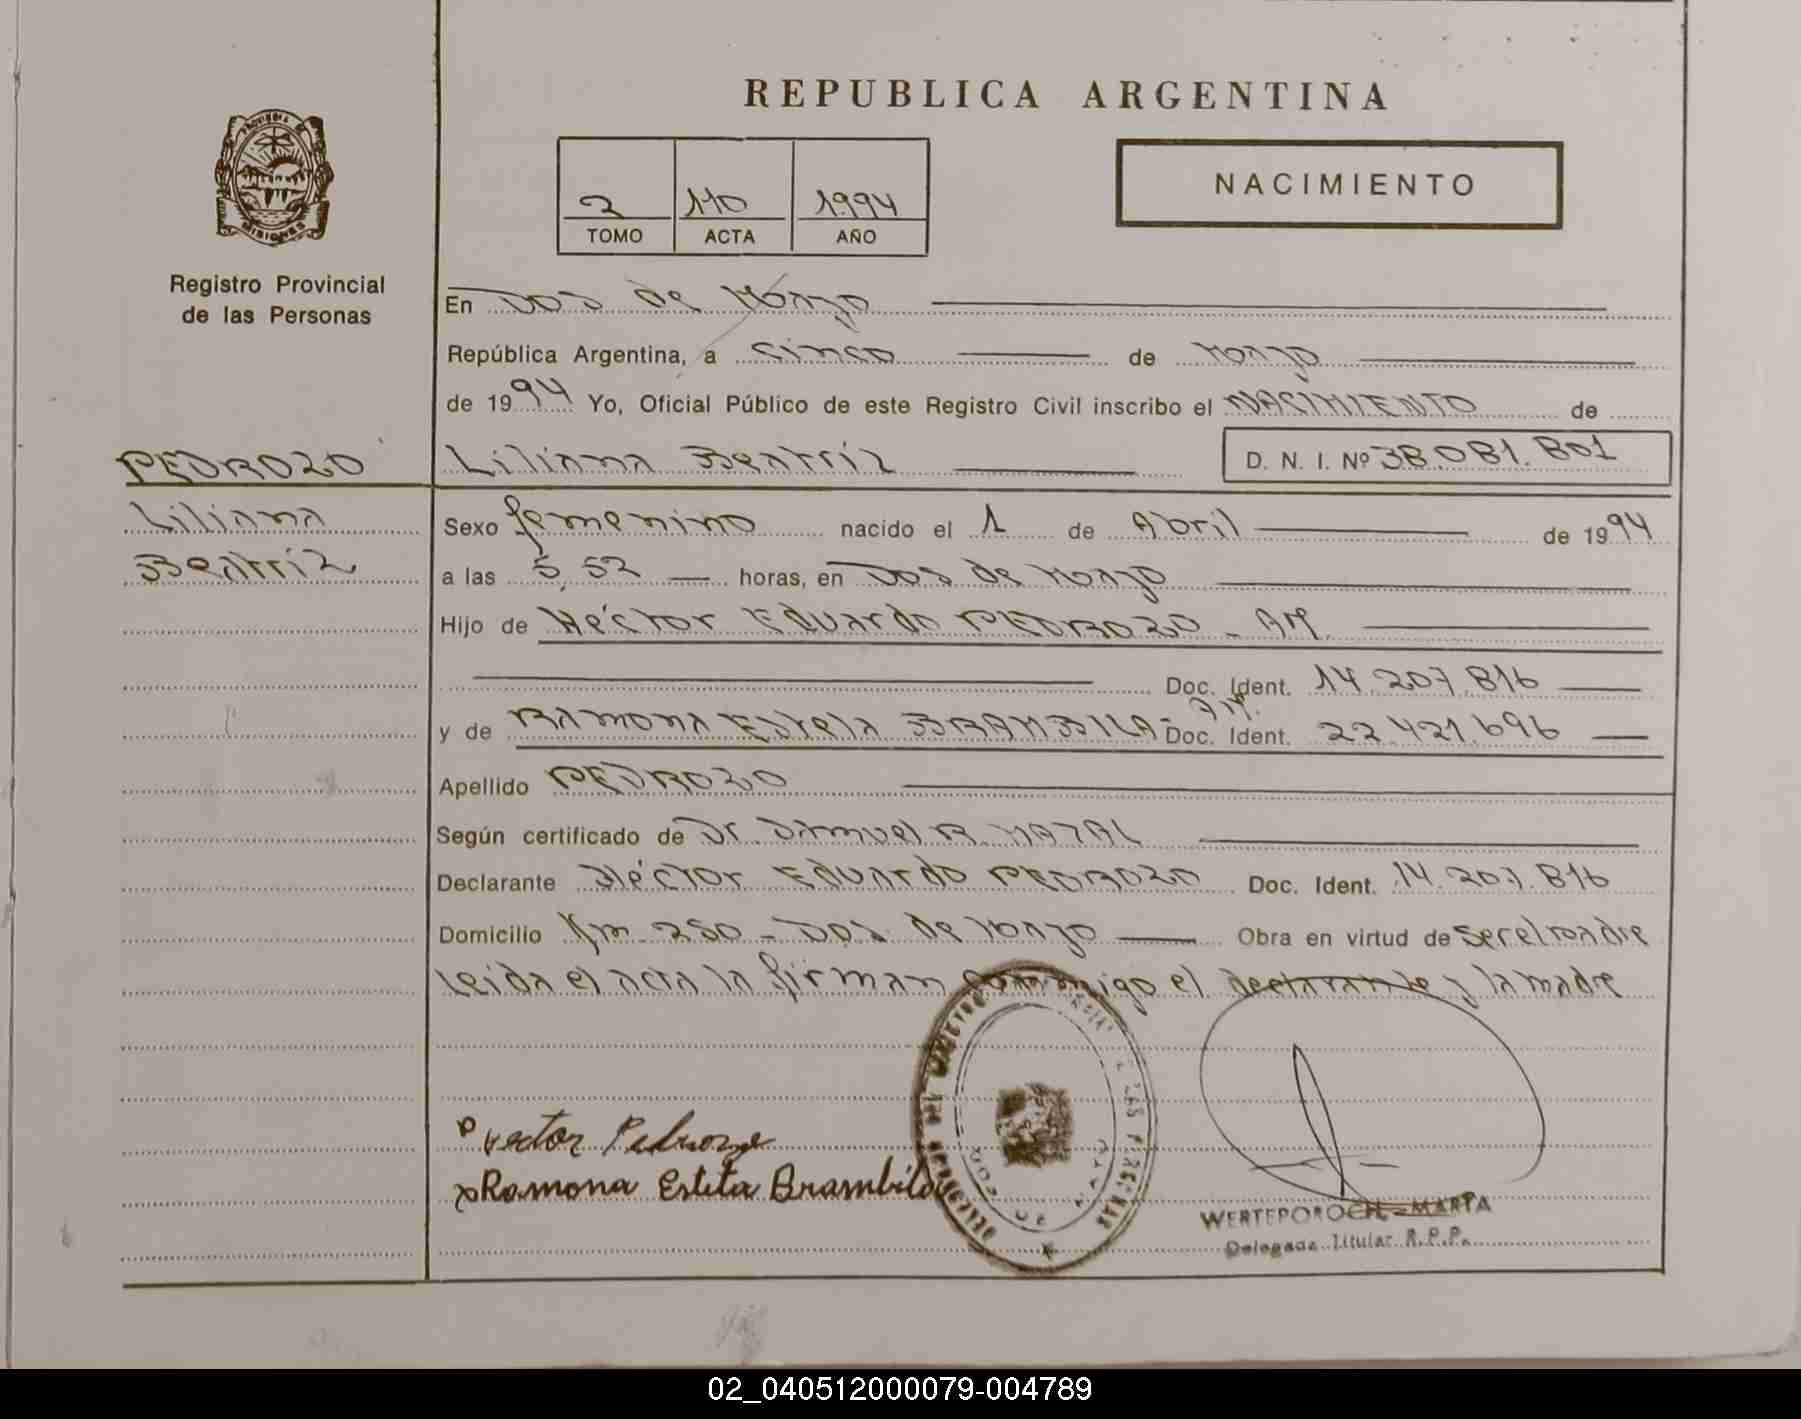 REPUBLICA ARGENTINA
NACIMIENTO
2 110 1994
TOMO ACTA AÑO
PROVINCIA DE
MISIONES
Registro Provincial
de las Personas
En Dos de Mayo
República Argentina, a cinco de Mayo
de 1994 Yo, Oficial Público de este Registro Civil inscribo el NACIMIENTO de
PEDROZO
Liliana Beatriz D. N. I. Nº 38.081.801
Liliana
Beatriz
Sexo femenino nacido el 1 de Abril de 1994
a las 5,52 horas, en Dos de Mayo
Hijo de Héctor Eduardo PEDROZO - AM.
Doc. Ident. 14.207.816
y de Ramona Estela BRAMBILLA - AM. Doc. Ident. 22.421.696
Apellido PEDROZO
Según certificado de Dr. Samuel R.
Declarante Héctor Eduardo PEDROZO Doc. Ident. 14.207.816
Domicilio Km 250 - Dos de Mayo Obra en virtud de ser el padre
Leida el acta la firman conmigo el declarante y la madre
Hector Pedrozo
Ramona Estela Brambila
DOS DE MAYO
WERTEPOROCH - MARTA
Delegada Titular R.P.P.
02_040512000079-004789